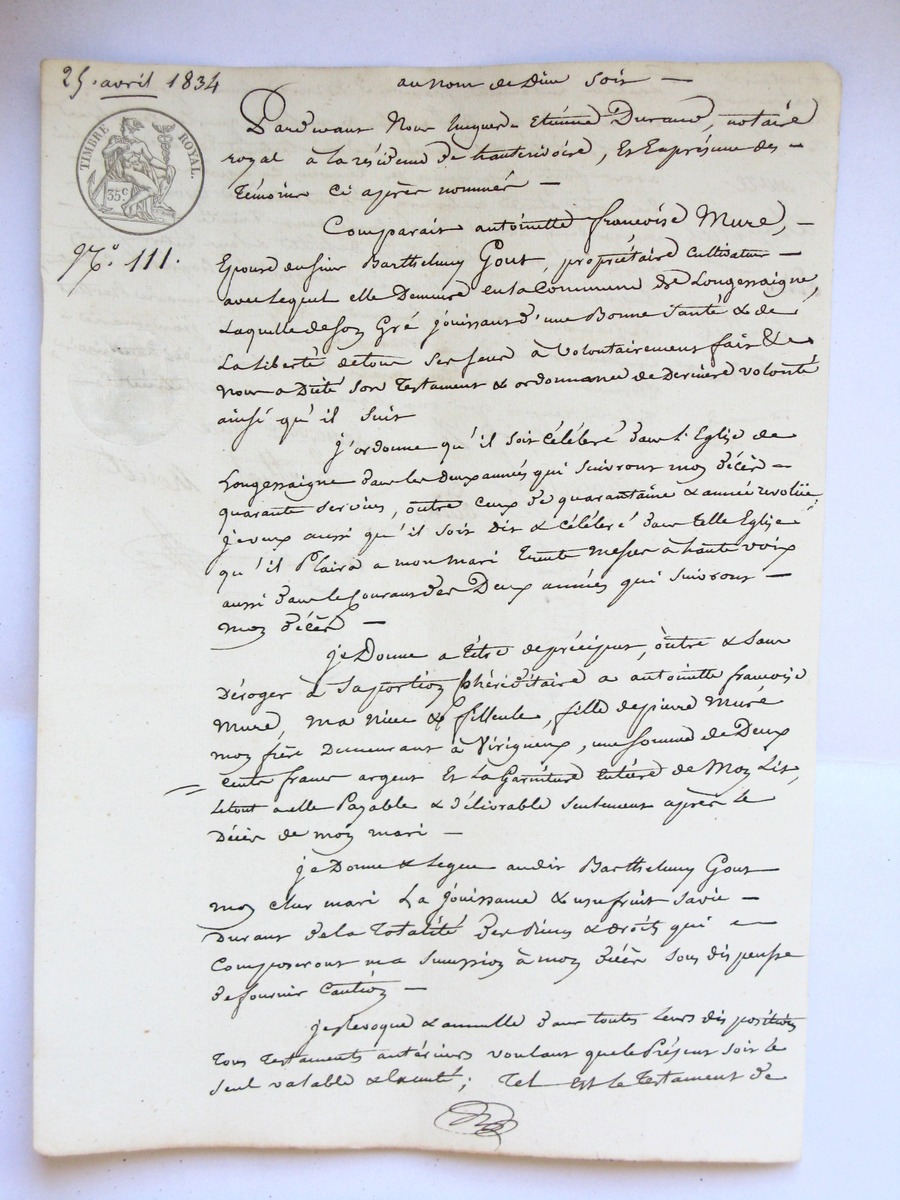 25. avril 1834
au nom de Dieu soit —
TIMBRE ROYAL.
35 c
N.o 111.
Pardevant Nous Jacques Etienne Durand, notaire
royal à la résidence de hauterivoire, Et En présence des —
Témoins ci après nommés —
Comparait antoinette françoise Mure, —
Epouse du sieur Barthelemy Gout, propriétaire Cultivateur —
avec lequel elle Demeure en la Commune de Longessaigne,
Laquelle de son Gré jouissant d'une Bonne santé & de
La liberté de tous ses sens à volontairement fait &
Nous a Dicté son Testament & ordonnance de Derniere volonté
ainsi qu'il suit
j'ordonne qu'il soit Célébré dans l'Eglise de
Longessaigne dans les deux années qui suivront mon décès —
quarante services, outre ceux de quarantaine & année revolüe,
je veux aussi qu'il soit Dit & célébré dans telle Eglise
qu'il Plaira a mon mari trente messes à haute voix
aussi dans le Courant des Deux années qui suivront —
mon décès —
je Donne a titre de préciput, outre & sans
Déroger à sa portion héréditaire a antoinette françoise
Mure, ma niece & filleule, fille de pierre Mure
mon frère Demeurant à Virigneux, une somme de Deux
cents francs argent Et La Garniture Entière de Mon Lit,
Letout a elle Payable & délivrable seulement après le
Décès de mon mari —
je Donne & Legue audit Barthelemy Gout
mon cher mari La jouissance & usufruit sa vie —
Durant de la Totalité des Biens & droits qui —
Composeront ma succession à mon décès sous dispense
de fournir Caution —
je Revoque & annulle dans toutes leurs dispositions
Tous Testaments antérieurs voulant que le Présent soit le
seul valable & Exécuté; Tel Est le Testament de